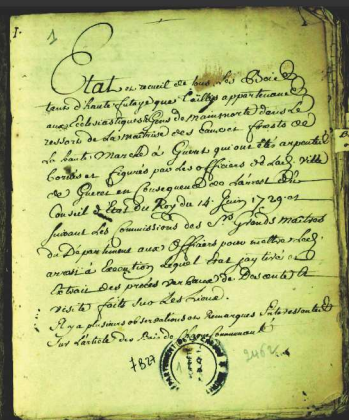 1.
1
Etat et recueil de tous les Bois
tant d'haute futaye que taillis appartenans
aux Ecclesiastiques et gens de mainmorte dans le
ressort de la maitrise des Eaux et forests de
la haute Marche à Gueret qui ont étés arpentés
bornés et figurés par les officiers de lad. ville
de Gueret en Consequence de l'arest du
Conseil d'Etat du Roy du 14 Juin 1729 et
suivant les Commissions des Srs Grands maitres
du Département aux officiers pour mettre led.
arrest a execution lequel Etat
Extrait des procès verbaux de Descente et
visite faits sur les Lieux.
Il y a plusieurs observations et Remarques Interessantes
Sur l'article des Bois de
7827
2462